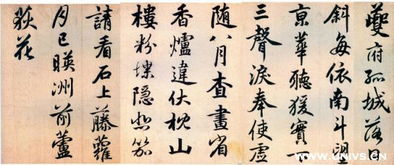 夔府孤城落日
斜每依南斗望
京華聽猿實下
三聲淚奉使虛
隨八月查畫省
香爐違伏枕山
樓粉堞隱悲笳
請看石上藤蘿
月已暎洲前蘆
荻花